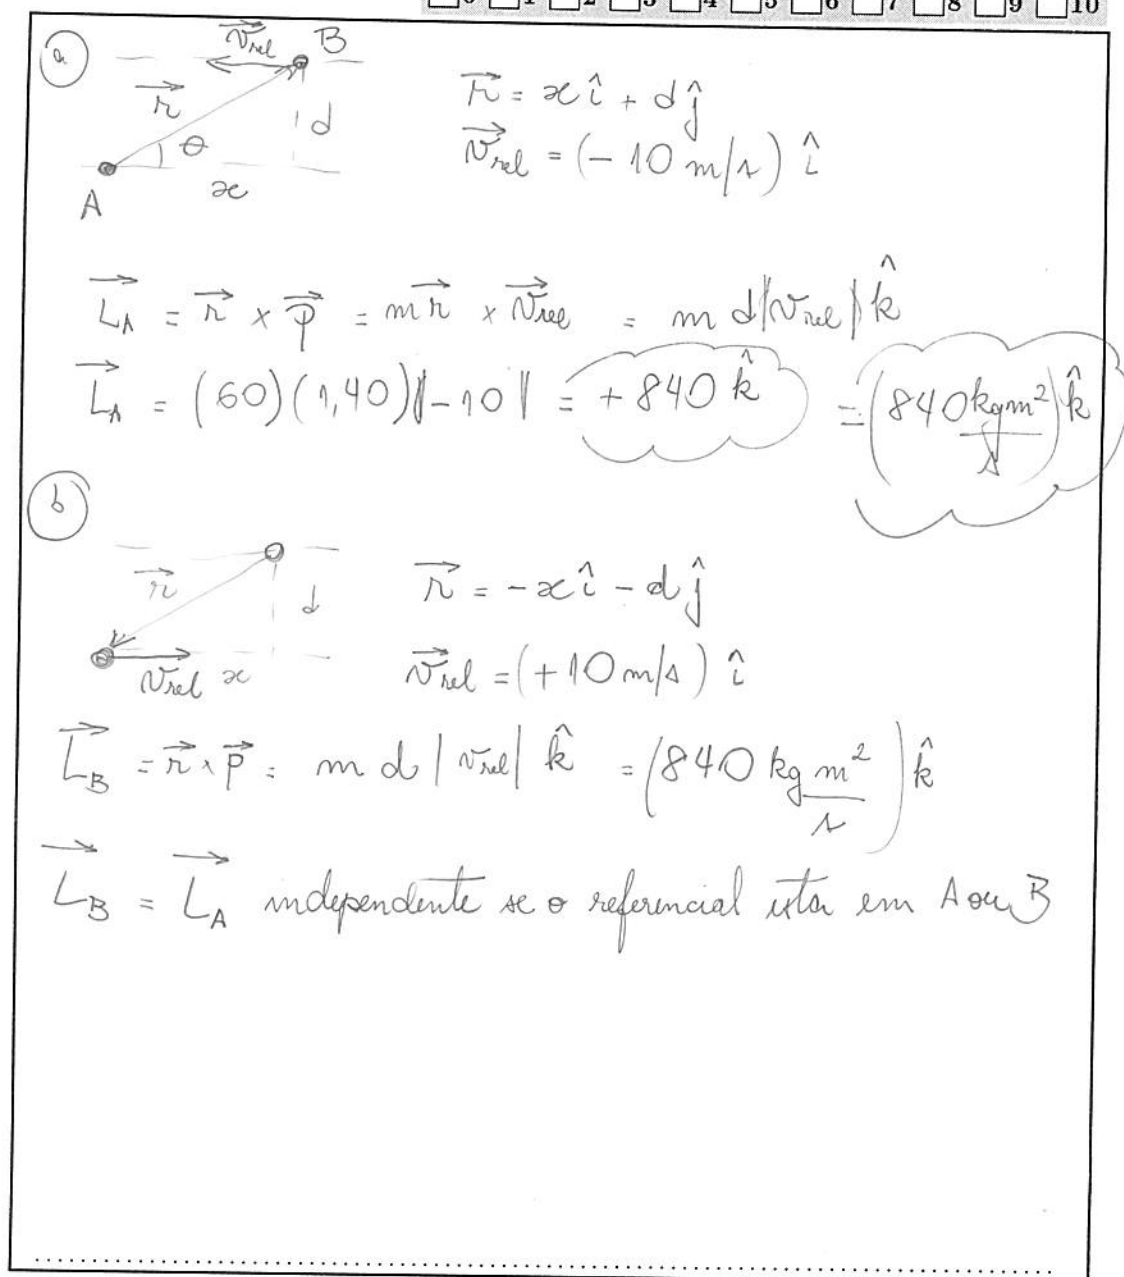 0 1 2 3 4 5 6 7 8 9 10
a
v⃗rel B
r⃗
d
θ
A
x
r⃗ = x î + d ĵ
v⃗rel = (- 10 m/s) î
L⃗A = r⃗ × p⃗ = m r⃗ × v⃗rel = m d |vrel| k̂
L⃗A = (60)(1,40)|-10| = +840 k̂ = (840 kgm²/s) k̂
b
r⃗
d
v⃗rel x
r⃗ = -x î - d ĵ
v⃗rel = (+10 m/s) î
L⃗B = r⃗ × p⃗ = m d |vrel| k̂ = (840 kg m²/s) k̂
L⃗B = L⃗A independente se o referencial esta em A ou B